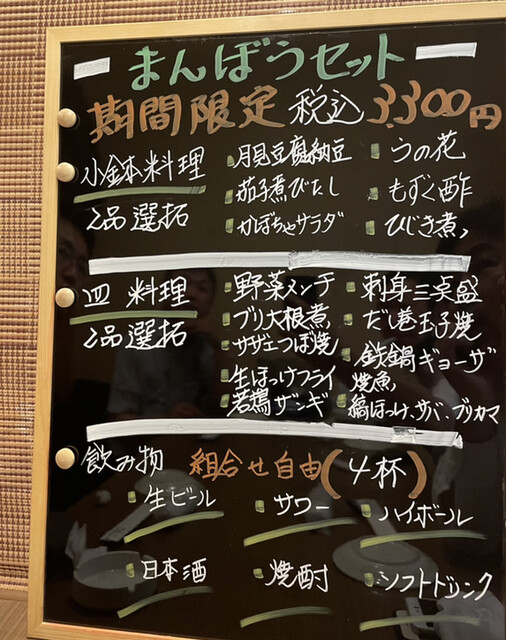 まんぼうセット
期間限定 税込 3,300円
小鉢料理
2品選択
月見豆腐納豆
茄子煮びたし
かぼちゃサラダ
うの花
もずく酢
ひじき煮
皿 料理
2品選択
野菜メンチ
ブリ大根煮
サザエつぼ焼
生ほっけフライ
若鶏ザンギ
刺身三点盛
だし巻玉子焼
鉄鍋ギョーザ
焼魚
縞ほっけ、サバ、ブリカマ
飲み物 組合せ自由(4杯)
生ビール サワー ハイボール
日本酒 焼酎 ソフトドリンク